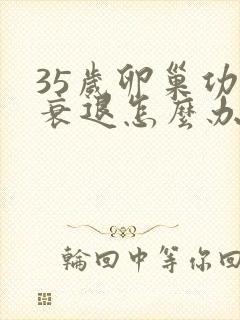 35歲卵巢功
衰退怎麼办
輪回中等你回